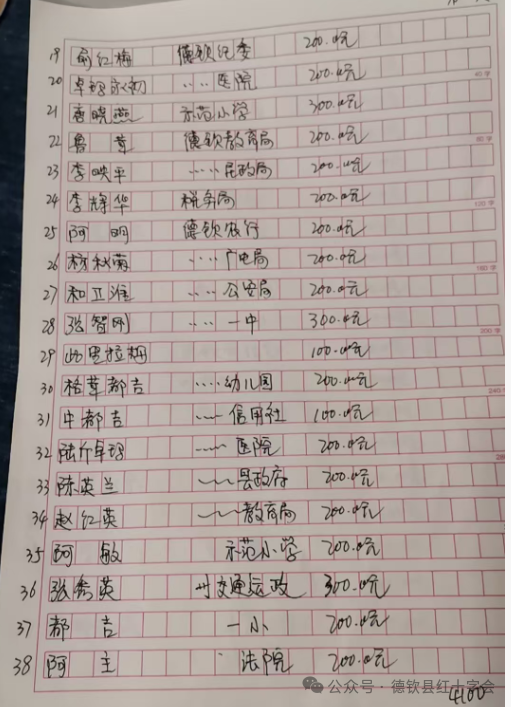 19 俞红梅 德钦纪委 200.00元
20 卓玛永初 .... 医院 200.00元
21 唐晓燕 示范小学 300.00元
22 鲁茸 德钦教育局 200.00元
23 李映平 ..... 民政局 200.00元
24 李锦华 税务局 200.00元
25 阿明 德钦农行 200.00元
26 杨秋菊 .... 广电局 200.00元
27 和卫淮 .... 公安局 200.00元
28 张智明 .... 一中 300.00元
29 此里拉姆 100.00元
30 格茸都吉 .... 幼儿园 200.00元
31 中都吉 信用社 100.00元
32 陆斤卓玛 医院 200.00元
33 陈英兰 县政府 200.00元
34 赵红英 教育局 200.00元
35 阿敏 示范小学 200.00元
36 张秀英 州交通运政 300.00元
37 都吉 一小 200.00元
38 阿主 法院 200.00元
公众号·德钦县红十字会
4100